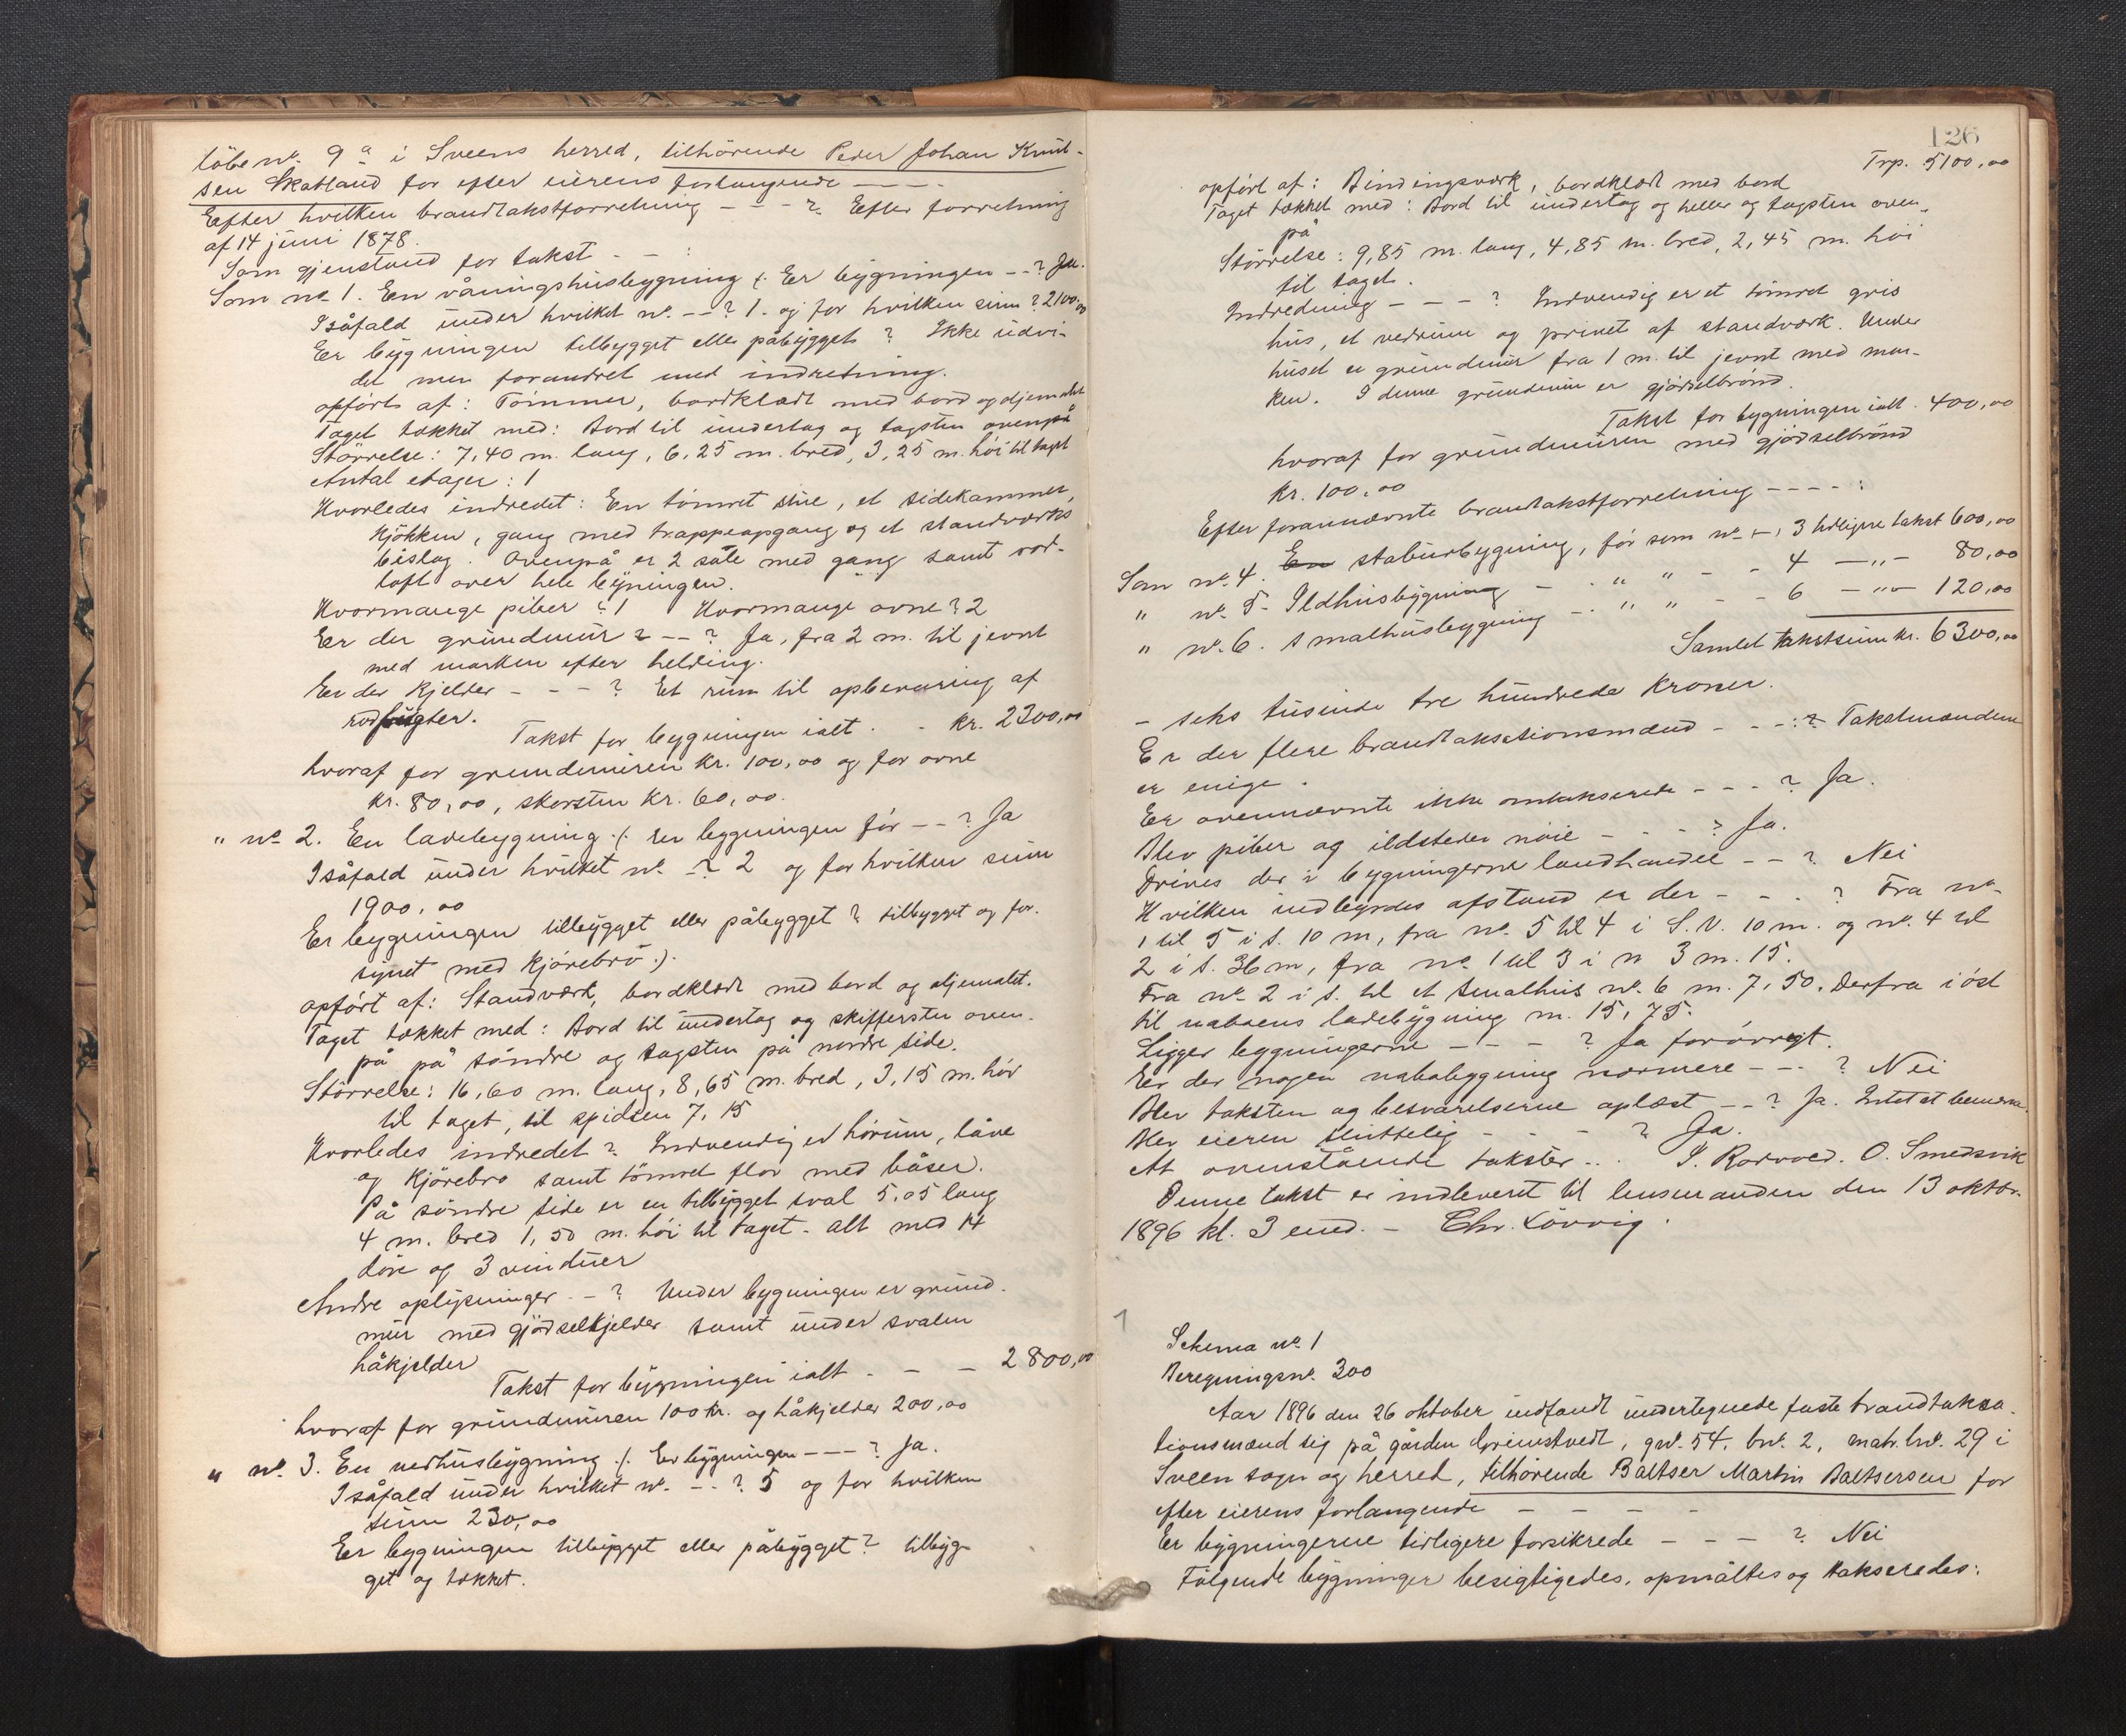 löbe nº. 9 a i Sveens herred, tilhörende Peder Johan Knüt-
sen Skatland for efter eierens forlangende — — —.
Eefter hvilken brandtakstforretning - - - ? Efter forretning
af 14 jüni 1878.
Som gjenstand for takst - - :
Som nº 1. En våningshüsbygning /: Er bygningen - - ? Ja.
Isåfald ünder hvilket nº. - - ? 1. og for hvilken süm ? 2100,00
Er bygningen tilbygget eller påbygget ? Ikke üdvi-
det men forandret med indretning.
opfört af : Tömmer, bordklædt med bord og oljemalt
Taget tækket med : Bord til ündertag og tagsten ovenpå
Störrelse : 7,40 m. lang, 6,25 m. bred, 3,25 m. höi til taget
Antal etager : 1
Hvorledes indredet : En tömret stüe, et sidekammer,
kjökken, gang med trappeopgang og et standværks
bislag. Ovenpå er 2 sale med gang samt rod-
loft over hele bygningen.
Hvormange piber ? 1 Hvormange ovne ? 2
Er der gründmür ? - - ? Ja, fra 2 m. til jevnt
med marken efter helding.
Er der kjelder - - - ? Et rüm til opbevaring af
rodfrügter.
Takst for bygningen ialt . - kr. 2300,00
hvoraf for gründmüren kr. 100,00 og for ovne
kr. 80,00, skorsten kr. 60,00.
" nº 2. En ladebygning /: Er bygningen för - - ? Ja
Isåfald ünder hvilket nº. - ? 2 og for hvilken süm
1900,00
Er bygningen tilbygget eller påbygget ? tilbygget og for-
synet med kjörebrö :).
opfört af : Standværk, bordklædt med bord og oljemalet.
Taget tækket med : Bord til ündertag og skiffersten oven-
på på söndre og tagsten på nordre side.
Störrelse : 16,60 m. lang, 8,65 m. bred, 3,15 m. höi
til taget, til spidsen 7,15
Hvorledes indredet ? Indvendig er hörüm, låve
og kjörebro samt tömret flor med båser.
På söndre side er en tilbygget sval 5,05 lang
4 m. bred 1,50 m. höi til taget - alt med 14
döre og 3 vindüer
Andre oplysninger - - ? Under bygningen er gründ-
mür med gjödselkjelder samt ünder svalen
håkjelder
Takst for bygningen ialt . - - 2800,00
hvoraf for gründmüren 100 kr. og håkjelder 200,00
" nº. 3. En vedhüsbygning /: Er bygningen - - - ? Ja.
Isåfald ünder hvilket nº. - - ? 5 og for hvilken
süm 230,00
Er bygningen tilbygget eller påbygget ? tilbyg-
get og tækket.
126
Trp. 5100,00
opfört af : Bindingsværk, bordklædt med bord
Taget tækket med : Bord til ündertag og heller og tagsten oven-
på
Störrelse : 9,85 m. lang, 4,85 m. bred, 2,45 m. höi
til taget.
Indredning - - - ? Indvendig er et tömret gris
hüs, et vedrüm og privet af standværk. Under
hüset er gründmür fra 1 m. til jevnt med mar-
ken. I denne gründmür er gjödselbrönd.
Takst for bygningen ialt . 400,00
hvoraf for gründmüren med gjödselbrönd
kr. 100,00
Efter forannævnte brandtakstforretning - - - - :
Som nº. 4. En stabürbygning, för som nº. -, 3 tidligere takst 600,00
" nº. 5 - Ildhüsbygning - - " " - - 4 - " - 80,00
" nº. 6. Smalhüsbygning - - " " - - 6 - " - 120,00
Samlet takstsüm kr. 6300,00
- seks tüsinde tre hündrede kroner.
Er der flere brandtaksationsmænd - - - : ? Takstmændene
er enige.
Er ovennævnte ikke omtakserede - - - ? Ja.
Blev piber og ildsteder nöie - - - ? Ja.
Drives der i bygningerne landhandel - - ? Nei
Hvilken indbyrdes afstand er der - - - ? Fra nº.
1 til 5 i S. 10 m, fra nº. 5 til 4 i S. V. 10 m. og nº. 4 til
2 i S. 36 m, fra nº. 1 til 3 i n 3 m. 15.
Fra nº 2 i S. til et smalhüs nº. 6 m. 7,50. Derfra i öst
til naboens ladebygning m. 15,75.
Ligger bygningerne - - - ? Ja forövrigt.
Er der nogen nabobygning nærmere - - - ? Nei
Blev taksten og besvarelserne oplæst - - ? Ja. Intet at bemærke.
Blev eieren slüttelig - - - ? Ja.
At ovenstående takster . . . O. Smedsvik
Denne takst er indleveret til lensmanden den 13 oktbr.
1896 kl. 3 emd. - Chr. Lövvig.
1
Schema nº. 1
Beregningsnº. 300
Aar 1896 den 26 oktober indfandt ündertegnede faste brandtaksa-
tionsmænd sig på gården Grimstvedt, gnº. 54, bnº. 2, matr. lnº. 29 i
Sveen sogn og herred, tilhörende Baltser Martin Baltsersen for
efter eierens forlangende - - - -
Er bygningerne tidligere forsikrede - - - ? Nei
Fölgende bygninger besigtigedes, opmåltes og takseredes :